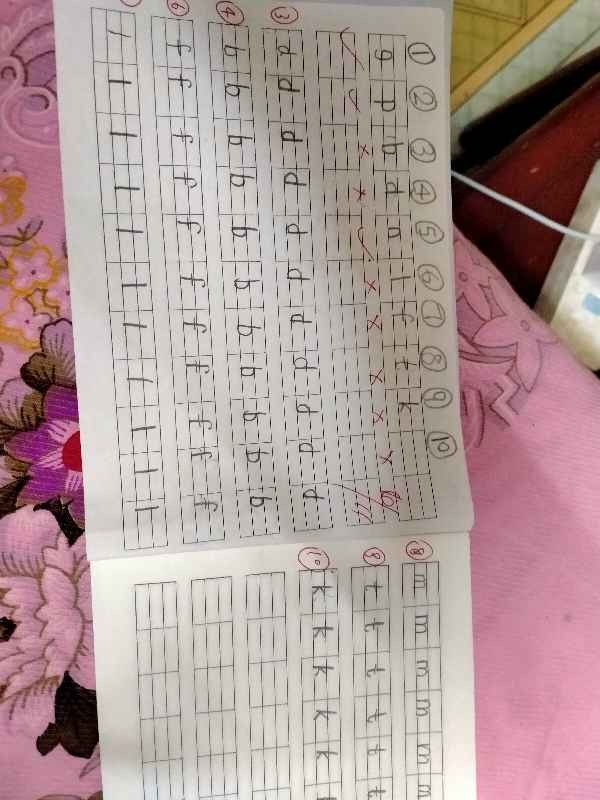 ① ② ③ ④ ⑤ ⑥ ⑦ ⑧ ⑨ ⑩
g p b d n l f t k
③ d d d d d d d d d d d
④ b b b b b b b b b b b
⑥ f f f f f f f f f f f
l l l l l l l l l l l
⑧ m m m m m m
t t t t t t
⑩ k k k k k